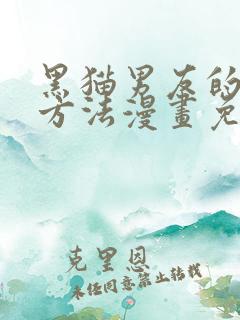 黑猫男友的
方法漫畫免
克里恩
未经同意禁止转载